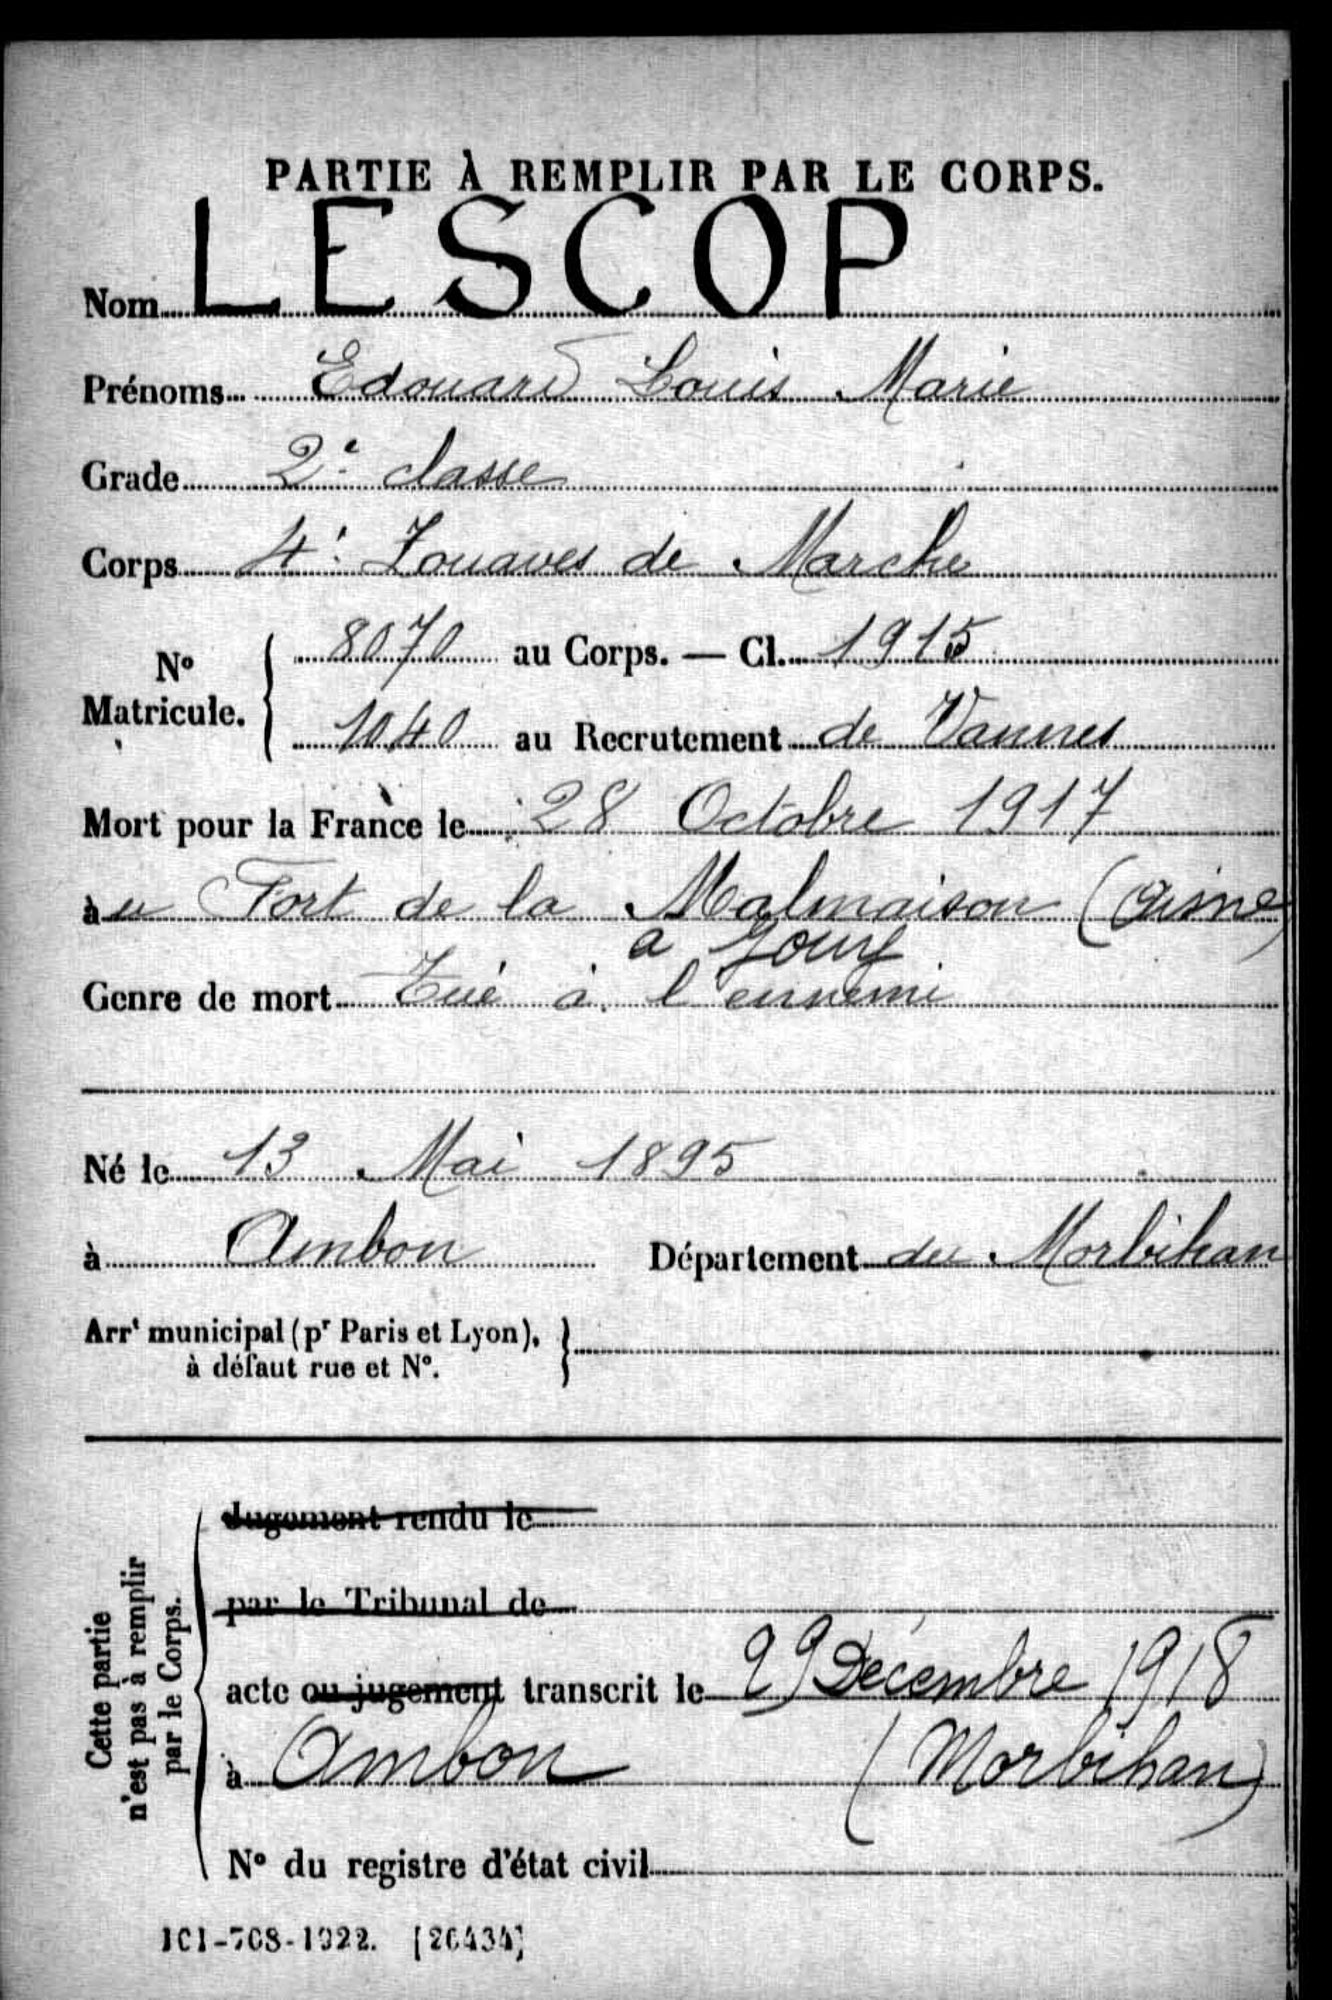 PARTIE À REMPLIR PAR LE CORPS.
Nom LESCOP
Prénoms Edouard Louis Marie
Grade 2e classe
Corps 4e Zouaves de Marche
No Matricule. { 8070 au Corps. — Cl. 1915
1040 au Recrutement de Vannes
Mort pour la France le 28 Octobre 1917
àu Fort de la Malmaison (Aisne)
a Jouy
Genre de mort Tué à l'ennemi
Né le 13 Mai 1895
à Ambon Département du Morbihan
Arrt municipal (pr Paris et Lyon), }
à défaut rue et No.
Cette partie
n'est pas à remplir
par le Corps.
Jugement rendu le
par le Tribunal de
acte ou jugement transcrit le 29 Décembre 1918
à Ambon (Morbihan)
No du registre d'état civil
101-708-1922. [26434]